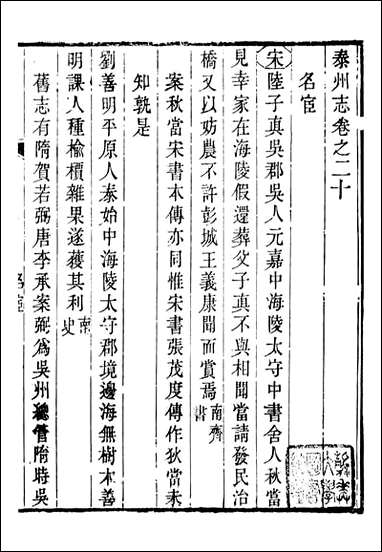 泰州志卷之二十
名宦
宋陸子真吳郡吳人元嘉中海陵太守中書舍人秋當
見幸家在海陵假還葬父子真不與相聞當請發民治
橋又以妨農不許彭城王義康聞而賞焉南齊書
案秋當宋書本傳亦同惟宋書張茂度傳作狄當未
知孰是
劉善明平原人泰始中海陵太守郡境邊海無樹木善
明課人種榆檟雜果遂獲其利南史
舊志有隋賀若弼唐李承案弼為吳州總管隋時吳